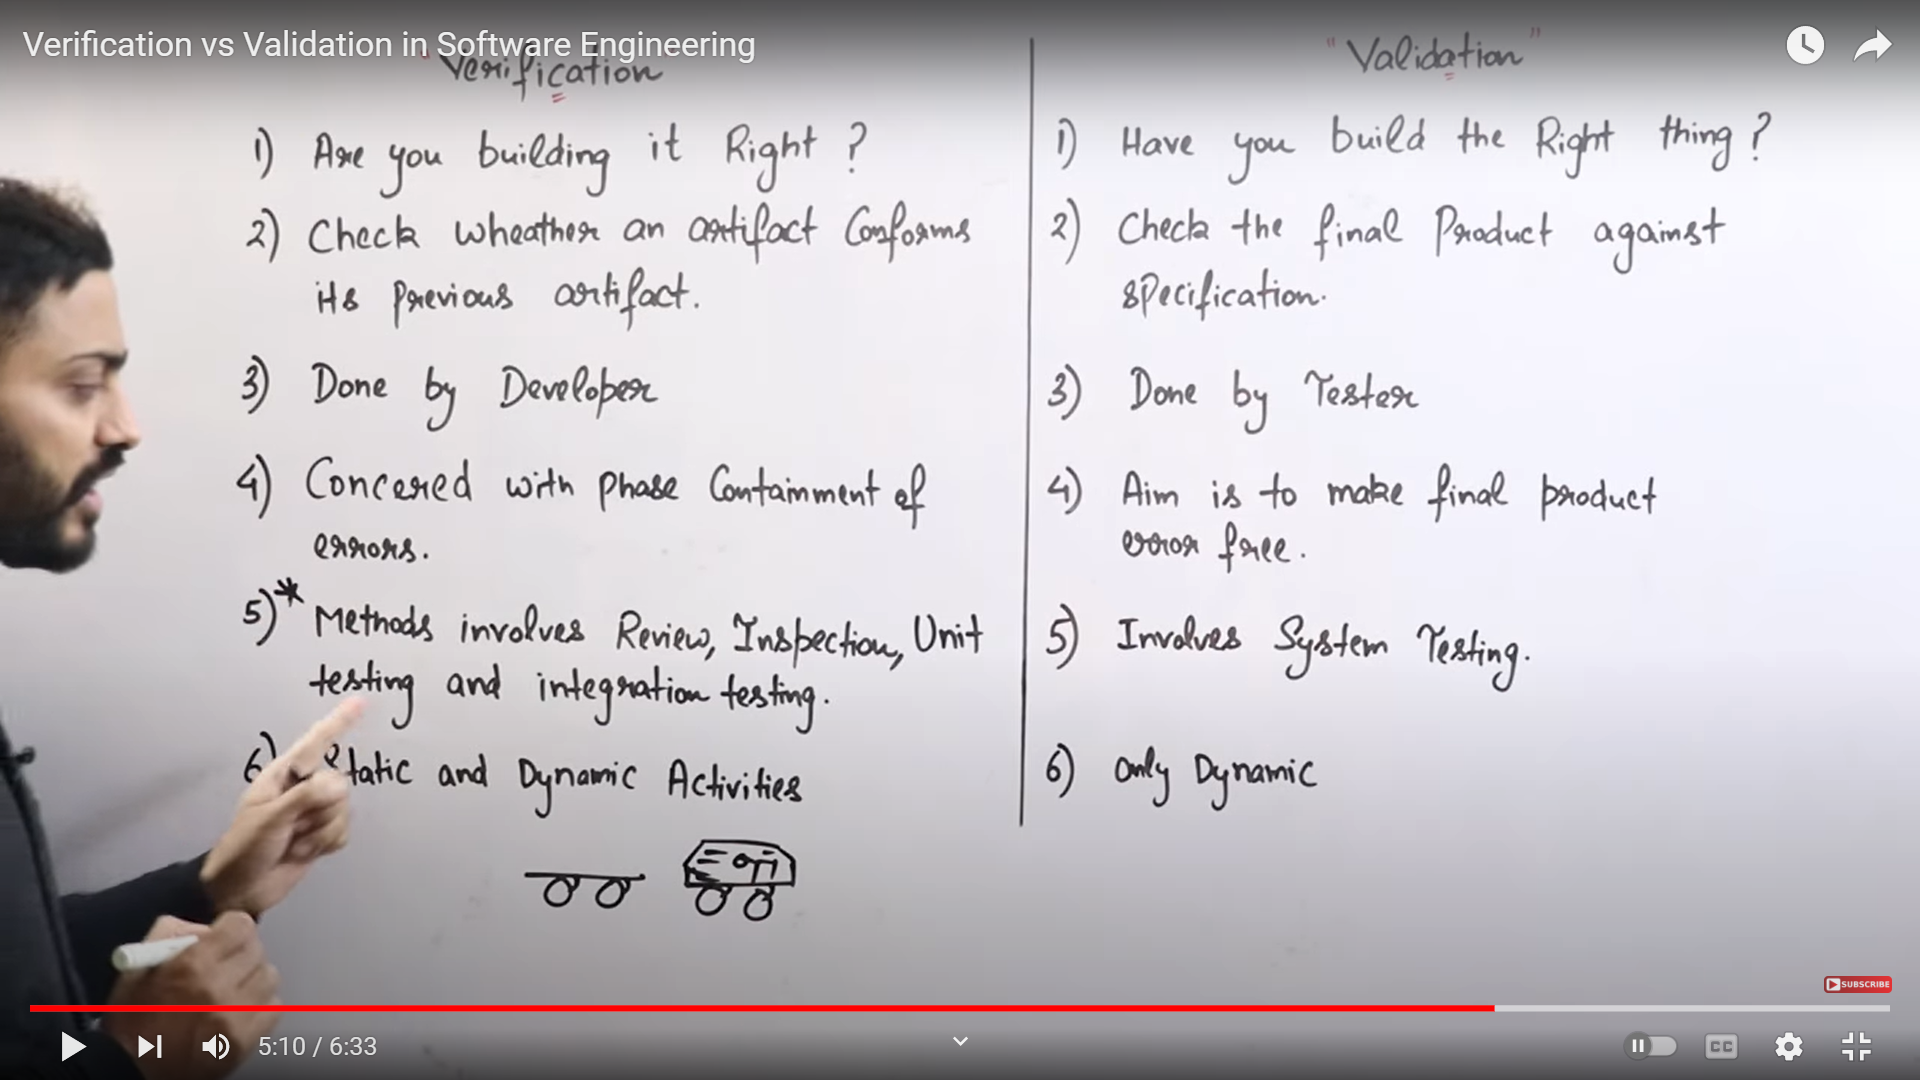 Verification vs Validation in Software Engineering
"Verification
"Validation"
1) Are you building it Right ?
2) Check wheather an artifact Conforms
its Previous artifact.
3) Done by Developer
4) Concered with Phase Containment of
errors.
5)* Methods involves Review, Inspection, Unit
testing and integration testing.
6) Static and Dynamic Activities
1) Have you build the Right thing ?
2) Check the final Product against
specification.
3) Done by Tester
4) Aim is to make final product
error free.
5) Involves System Testing.
6) Only Dynamic
SUBSCRIBE
5:10 / 6:33
CC